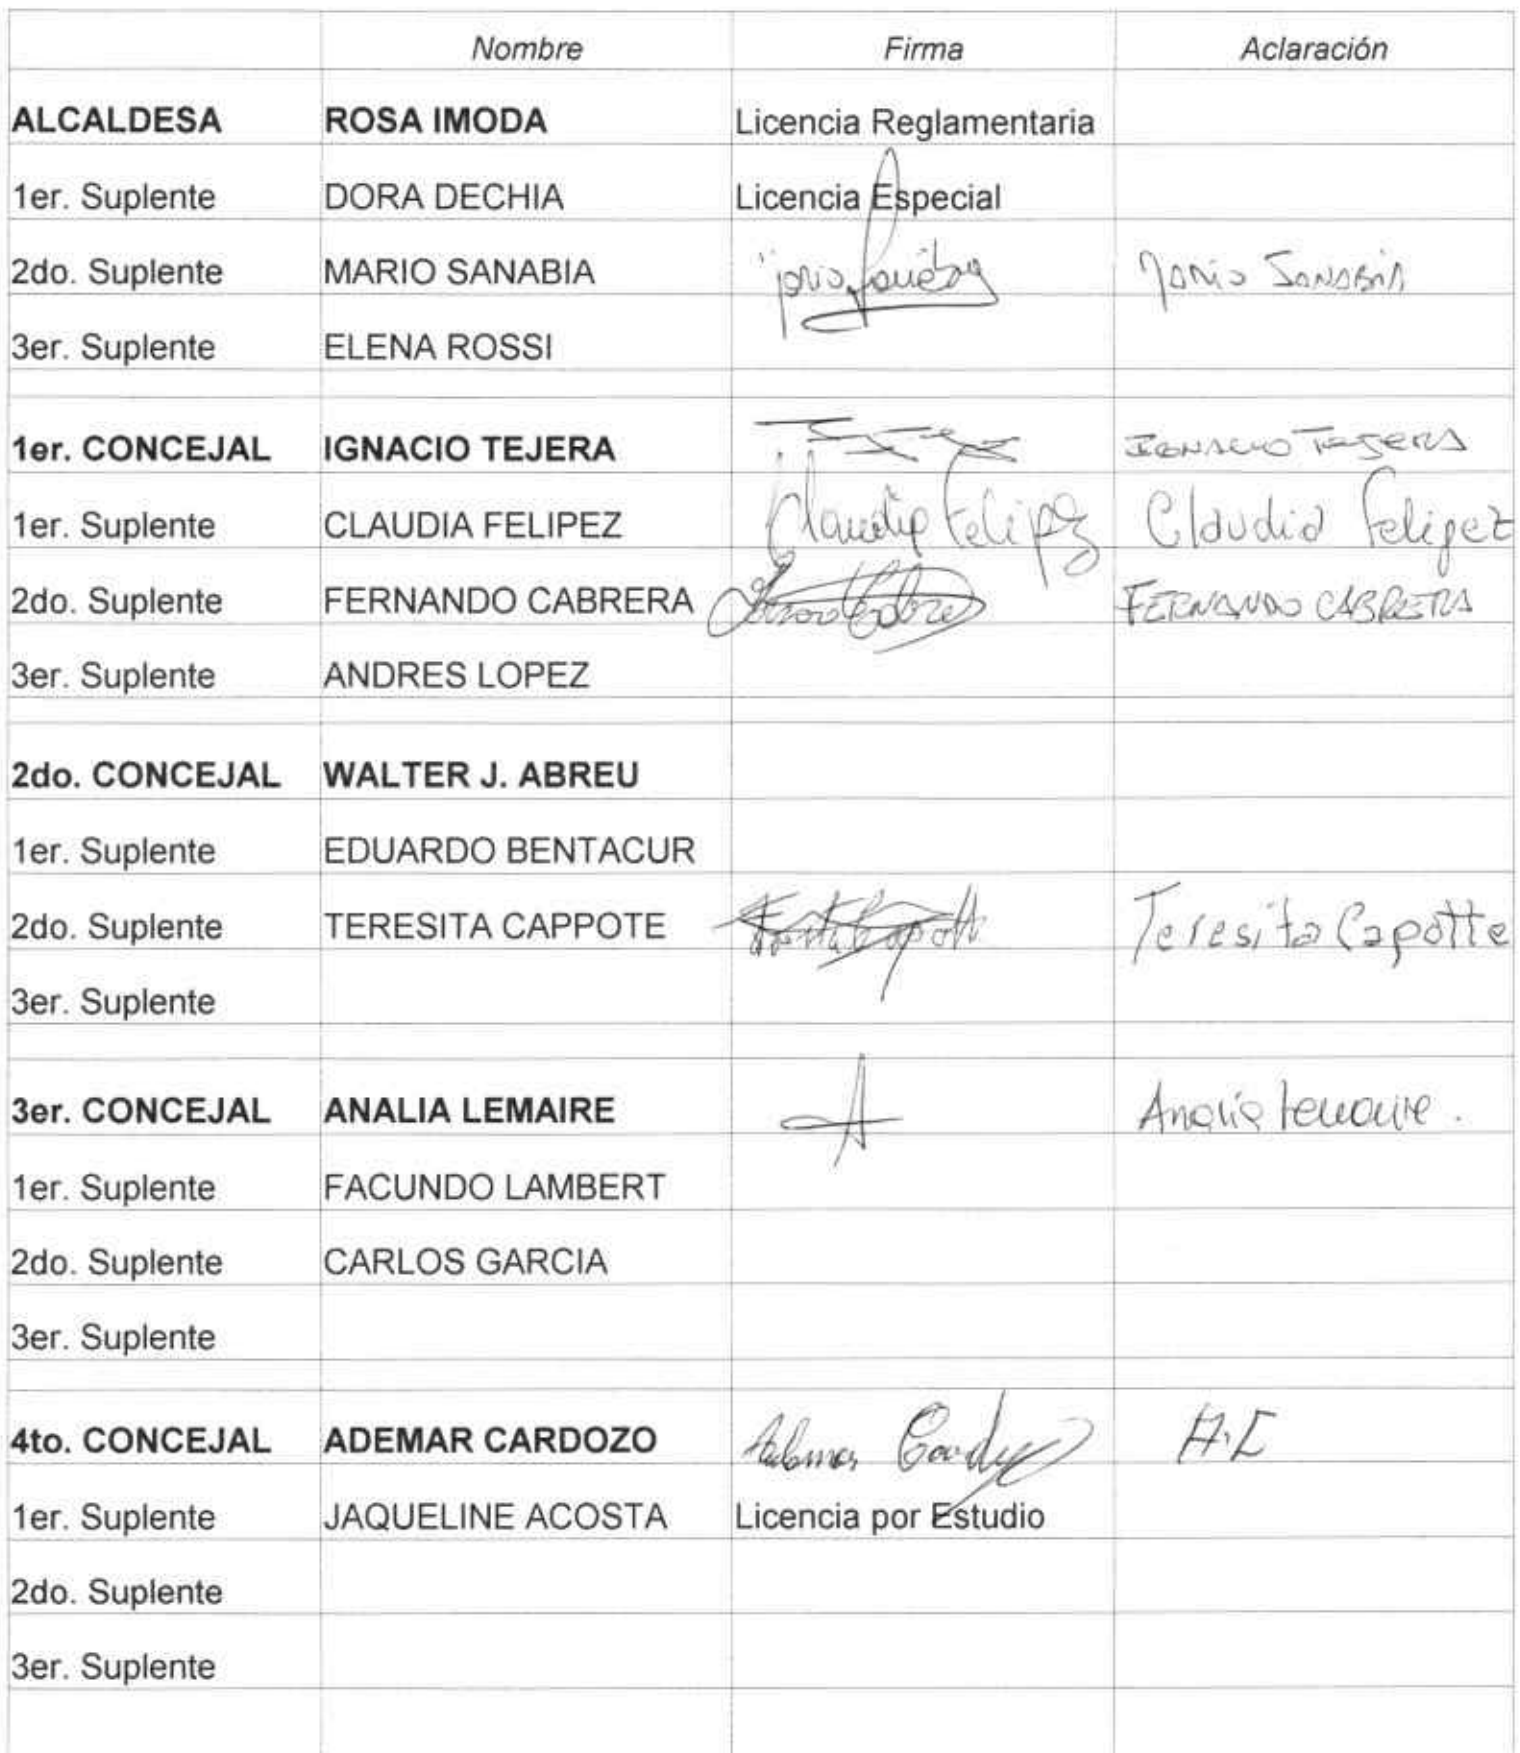 Nombre Firma Aclaración
ALCALDESA ROSA IMODA Licencia Reglamentaria
1er. Suplente DORA DECHIA Licencia Especial
2do. Suplente MARIO SANABIA Mario Sanabia
3er. Suplente ELENA ROSSI
1er. CONCEJAL IGNACIO TEJERA IGNACIO TEJERA
1er. Suplente CLAUDIA FELIPEZ Claudia Felipez Claudia Felipez
2do. Suplente FERNANDO CABRERA FERNANDO CABRERA
3er. Suplente ANDRES LOPEZ
2do. CONCEJAL WALTER J. ABREU
1er. Suplente EDUARDO BENTACUR
2do. Suplente TERESITA CAPPOTE Teresita Capotte
3er. Suplente
3er. CONCEJAL ANALIA LEMAIRE A Analia Lemaire.
1er. Suplente FACUNDO LAMBERT
2do. Suplente CARLOS GARCIA
3er. Suplente
4to. CONCEJAL ADEMAR CARDOZO A.C
1er. Suplente JAQUELINE ACOSTA Licencia por Estudio
2do. Suplente
3er. Suplente